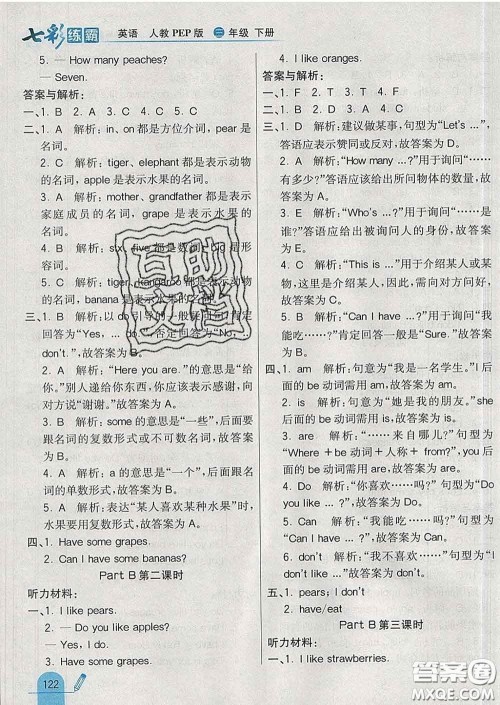 七彩练霸 英语 人教PEP版 三年级 下册
5. — How many peaches?
— Seven.
答案与解析:
一、1. B 2. A 3. C 4. A 5. C
二、1. A 解析:in、on 都是方位介词,pear 是
名词。
2. C 解析:tiger、elephant 都是表示动物
的名词,apple 是表示水果的名词。
3. C 解析:mother、grandfather 都是表示
家庭成员的名词,grape 是表示水果的
名词。
4. B 解析:six、five 都是数词,big 是形
容词。
5. C 解析:tiger、kangaroo 都是表示动物
的名词,banana 是表示水果的名词。
三、1. B 解析:以 do 引导的一般疑问句,肯定
回答为“Yes, ... do.”,否定回答为“No, ...
don't.”,故答案为 B。
2. A 解析:“Here you are.”的意思是“给
你。”别人递给你东西,你应该表示感谢,向
对方说“谢谢。”故答案为 A。
3. B 解析:some 的意思是“一些”,后面要
跟名词的复数形式或不可数名词,故答案
为 B。
4. A 解析:a 的意思是“一个”,后面跟名
词的单数形式,故答案为 A。
5. A 解析:表达“某人喜欢某种水果”时,
水果要用复数形式,故答案为 A。
四、1. Have some grapes.
2. Can I have some bananas?
Part B 第二课时
听力材料:
一、1. I like pears.
2. — Do you like apples?
— Yes, I do.
3. Have some grapes.
122
4. I like oranges.
答案与解析:
一、1. B 2. D 3. A 4. C
二、1. F 2. F 3. T 4. T 5. F
三、1. D 解析:建议做某事,句型为“Let's ...”,
答语应表示赞同或反对,故答案为 D。
2. A 解析:“How many ...?”用于询问“……
有多少?”答语应该给出所问物体的数量,
故答案为 A。
3. E 解析:“Who's ...?”用于询问“……是
谁?”答语应给出被询问人的身份,故答案
为 E。
4. C 解析:“This is ...”用于介绍某人或某
物,这里是介绍某人,因此,需向对方问好,
故答案为 C。
5. B 解析:“Can I have ...?”句型为“我能
吃……吗?”肯定回答一般是“Sure.”故答
案为 B。
四、1. am 解析:句意为“我是一名学生。”I 后
面的 be 动词需用 am,故答案为 am。
2. is 解析:句意为“她是我的朋友。”she
后面的 be 动词应用 is,故答案为 is。
3. are 解析:“……来自哪儿?”句型为
“Where +be动词+人称+ from?”you 后
面的 be 动词应用 are,故答案为 are。
4. Do 解析:“你喜欢……吗?”句型为“Do
you like ...?”故答案为 Do。
5. Can 解析:“我能吃……吗?”句型为
“Can I have ...?”故答案为 Can。
6. don't 解析:“我不喜欢……”句型为“I
don't like ...”故答案为 don't。
五、1. pears; I don't
2. have/eat
Part B 第三课时
听力材料:
一、1. I like strawberries.
答案圈
MXQE.COM